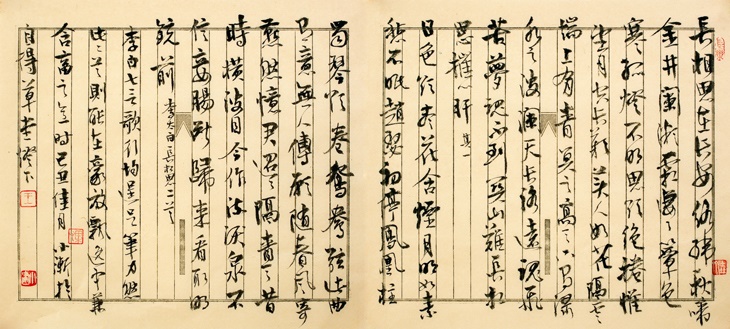 長相思在長安絡緯秋啼
金井闌微霜淒淒簟色
寒孤燈不明思欲絕捲帷
望月空長歎美人如花隔雲
端上有青冥之高天下有淥
水之波瀾天長路遠魂飛
苦夢魂不到關山難長相
思摧心肝 其一
日色欲盡花含煙月明如素
愁不眠趙瑟初停鳳凰柱
蜀琴欲奏鴛鴦弦此曲
有意無人傳願隨春風寄
燕然憶君迢迢隔青天昔
時橫波目今作流淚泉不
信妾腸斷歸來看取明
鏡前 李太白長相思二首
李白七言歌行均逞足筆力然
此二首則能在豪放飄逸中兼
含蓄之 時己丑佳月小漸於
自得草堂燈下